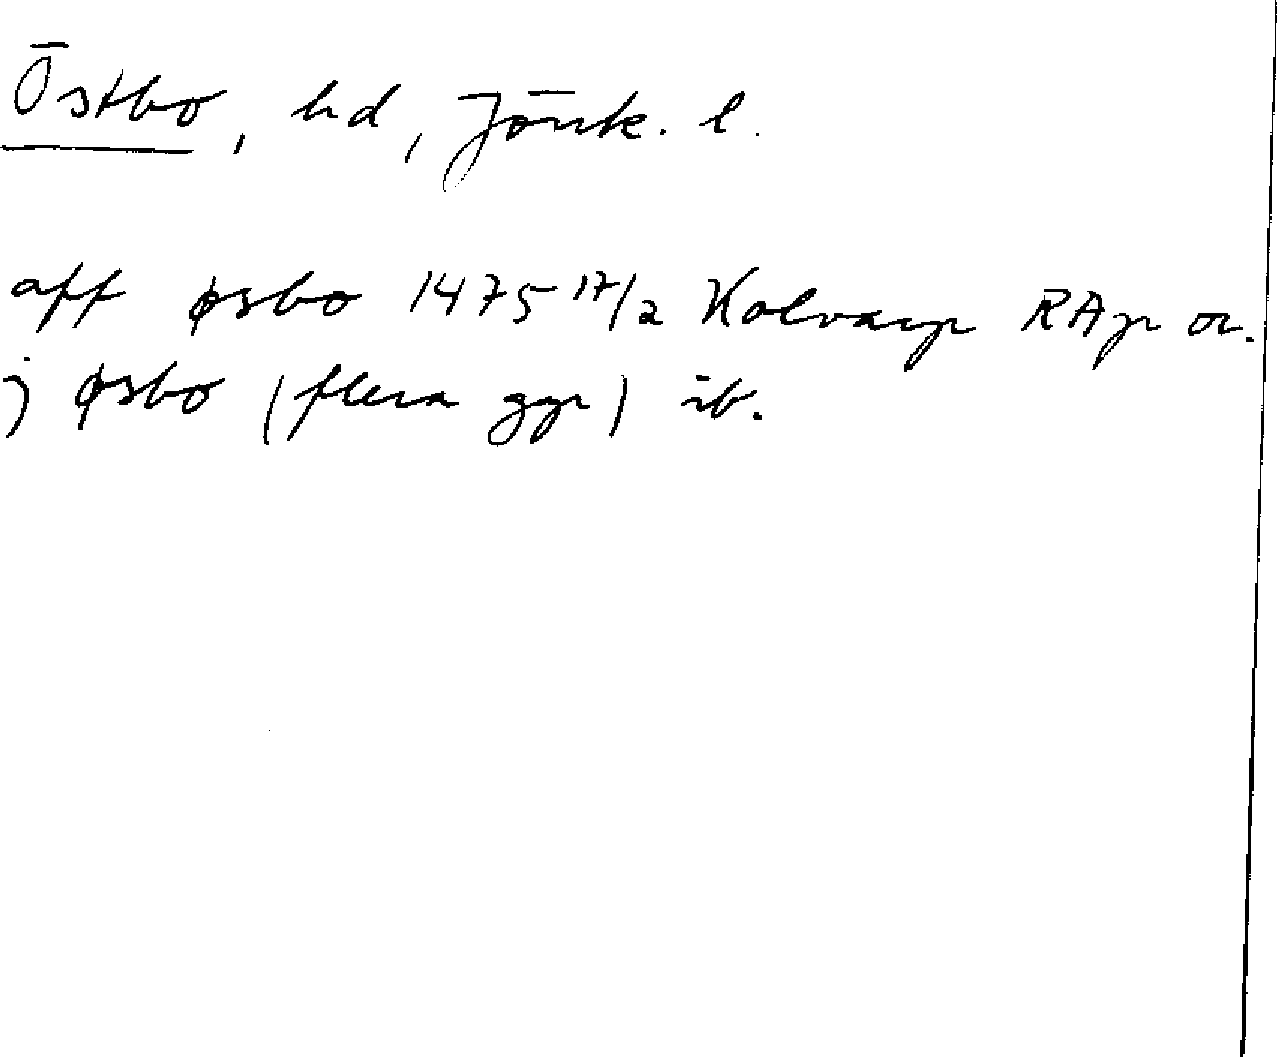 Östbo, hd, Jönk. l.
aff øsbo 1475 17/2 Kolvarp RAp or.
j øsbo (flera ggr) ib.